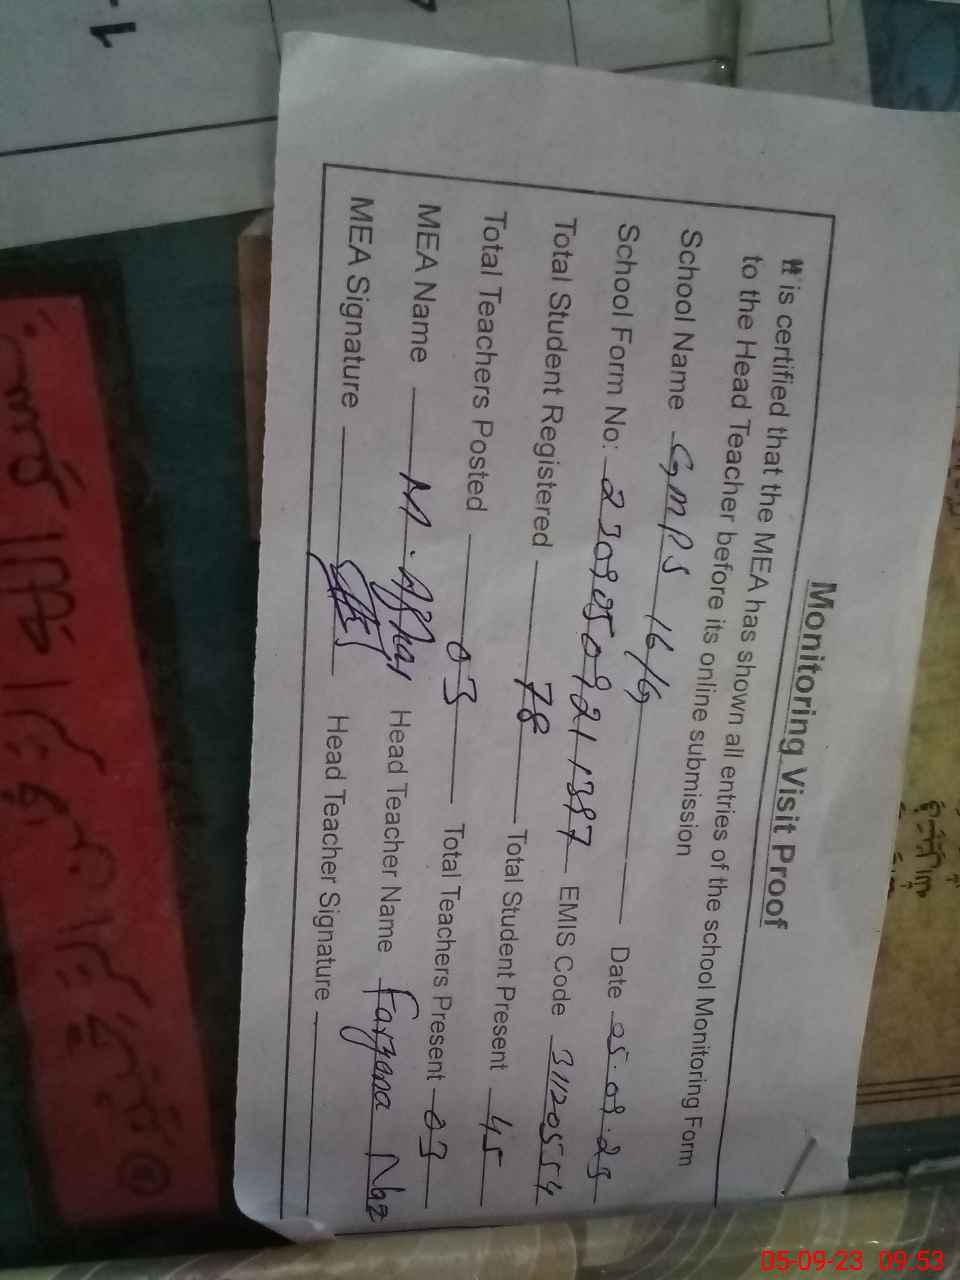 Monitoring Visit Proof
It is certified that the MEA has shown all entries of the school Monitoring Form
to the Head Teacher before its online submission
School Name GMPS 16/G Date 05.09.23
School Form No: 23090509211397 EMIS Code 31120554
Total Student Registered 78 Total Student Present 45
Total Teachers Posted 03 Total Teachers Present 03
MEA Name M. Afzal Head Teacher Name Farzana Naz
MEA Signature Head Teacher Signature
05-09-23 09:53